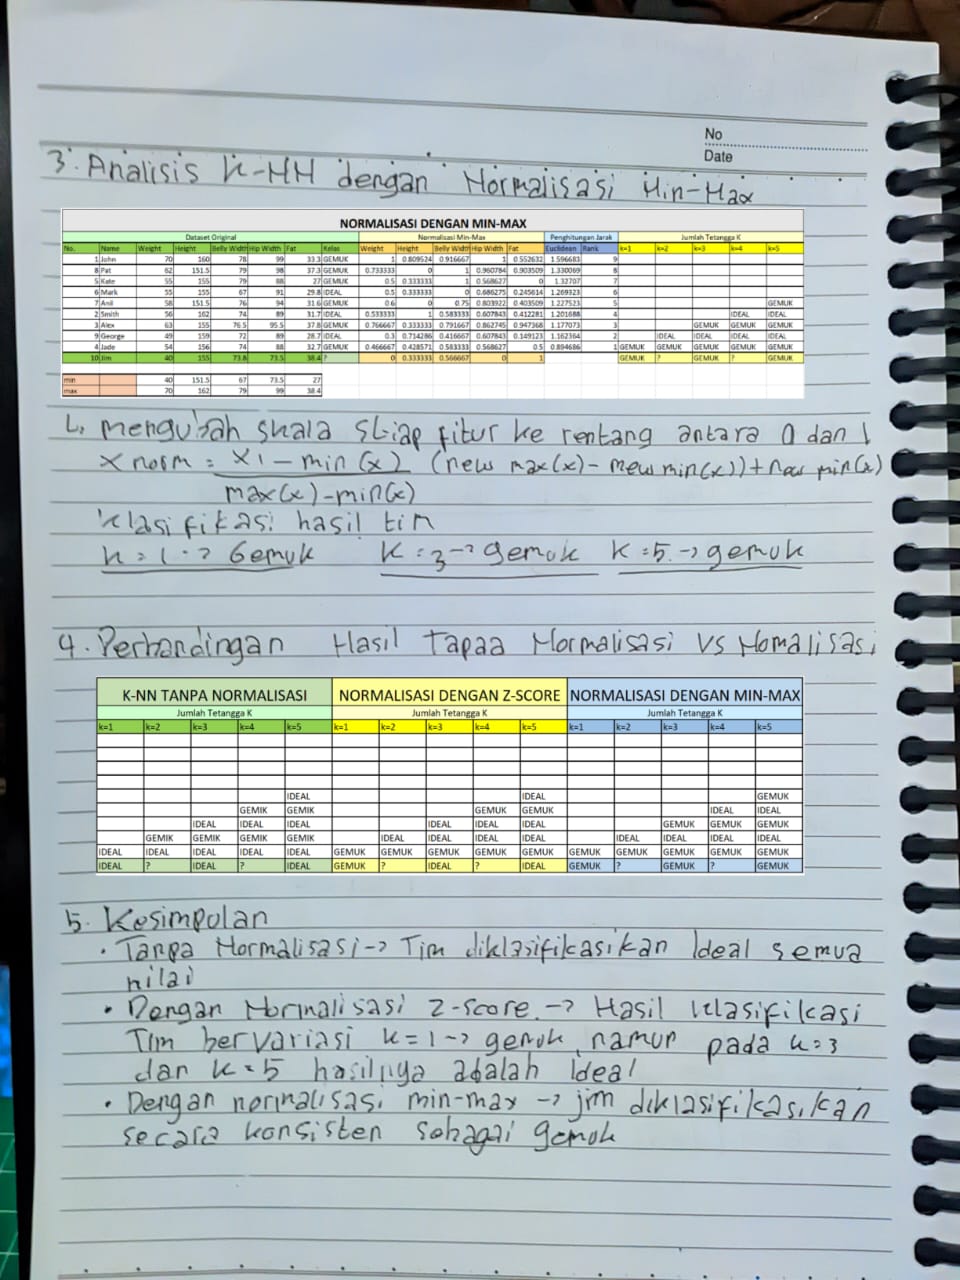 No
Date
3. Analisis K-NN dengan Normalisasi Min-Max
NORMALISASI DENGAN MIN-MAX
Dataset Original Normalisasi Min-Max Penghitungan Jarak Jumlah Tetangga K
No. Name Weight Height Belly Width Hip Width Fat Kelas Weight Height Belly Width Hip Width Fat Euclidean Rank k=1 k=2 k=3 k=4 k=5
1 John 70 160 78 99 33.3 GEMUK 1 0.809524 0.916667 1 0.552632 1.596683 9
8 Pat 62 151.5 79 98 37.3 GEMUK 0.733333 0 1 0.960784 0.903509 1.330069 8
5 Kate 55 155 79 88 27 GEMUK 0.5 0.333333 1 0.568627 0 1.32707 7
6 Mark 55 155 67 91 29.8 IDEAL 0.5 0.333333 0 0.686275 0.245614 1.269323 6
7 Anil 58 151.5 76 94 31.6 GEMUK 0.6 0 0.75 0.803922 0.403509 1.227523 5 GEMUK
2 Smith 56 162 74 89 31.7 IDEAL 0.533333 1 0.583333 0.607843 0.412281 1.201688 4 IDEAL IDEAL
3 Alex 63 155 76.5 95.5 37.8 GEMUK 0.766667 0.333333 0.791667 0.862745 0.947368 1.177073 3 GEMUK GEMUK GEMUK
9 George 49 159 72 89 28.7 IDEAL 0.3 0.714286 0.416667 0.607843 0.149123 1.162364 2 IDEAL IDEAL IDEAL IDEAL
4 Jade 54 156 74 88 32.7 GEMUK 0.466667 0.428571 0.583333 0.568627 0.5 0.894686 1 GEMUK GEMUK GEMUK GEMUK GEMUK
10 Jim 40 155 73.8 73.5 38.4 ? 0 0.333333 0.566667 0 1 GEMUK ? GEMUK ? GEMUK
min 40 151.5 67 73.5 27
max 70 162 79 99 38.4
L, mengubah skala setiap fitur ke rentang antara 0 dan 1
X norm = X1 - min (x) (new max(x) - new min(x)) + new min(x)
max(x)-min(x)
klasifikasi hasil tim
k = 1 -> Gemuk K = 3 -> gemuk K = 5 -> gemuk
4. Perbandingan Hasil Tapaa Normalisasi VS Nomalisasi
K-NN TANPA NORMALISASI NORMALISASI DENGAN Z-SCORE NORMALISASI DENGAN MIN-MAX
Jumlah Tetangga K Jumlah Tetangga K Jumlah Tetangga K
k=1 k=2 k=3 k=4 k=5 k=1 k=2 k=3 k=4 k=5 k=1 k=2 k=3 k=4 k=5
IDEAL IDEAL GEMUK
GEMIK GEMIK GEMUK GEMUK IDEAL IDEAL
IDEAL IDEAL IDEAL IDEAL IDEAL IDEAL GEMUK GEMUK GEMUK
GEMIK GEMIK GEMIK GEMIK IDEAL IDEAL IDEAL IDEAL IDEAL IDEAL IDEAL IDEAL
IDEAL IDEAL IDEAL IDEAL IDEAL GEMUK GEMUK GEMUK GEMUK GEMUK GEMUK GEMUK GEMUK GEMUK GEMUK
IDEAL ? IDEAL ? IDEAL GEMUK ? IDEAL ? IDEAL GEMUK ? GEMUK ? GEMUK
5. Kesimpolan
• Tanpa Normalisasi -> Tim diklasifikasikan Ideal semua
nilai
• Dengan Normalisasi Z-score -> Hasil klasifikasi
Tim bervariasi k=1 -> gemuk, namun pada k=3
dan k=5 hasilnya adalah Ideal
• Dengan normalisasi min-max -> jim diklasifikasikan
secara konsisten sebagai gemuk